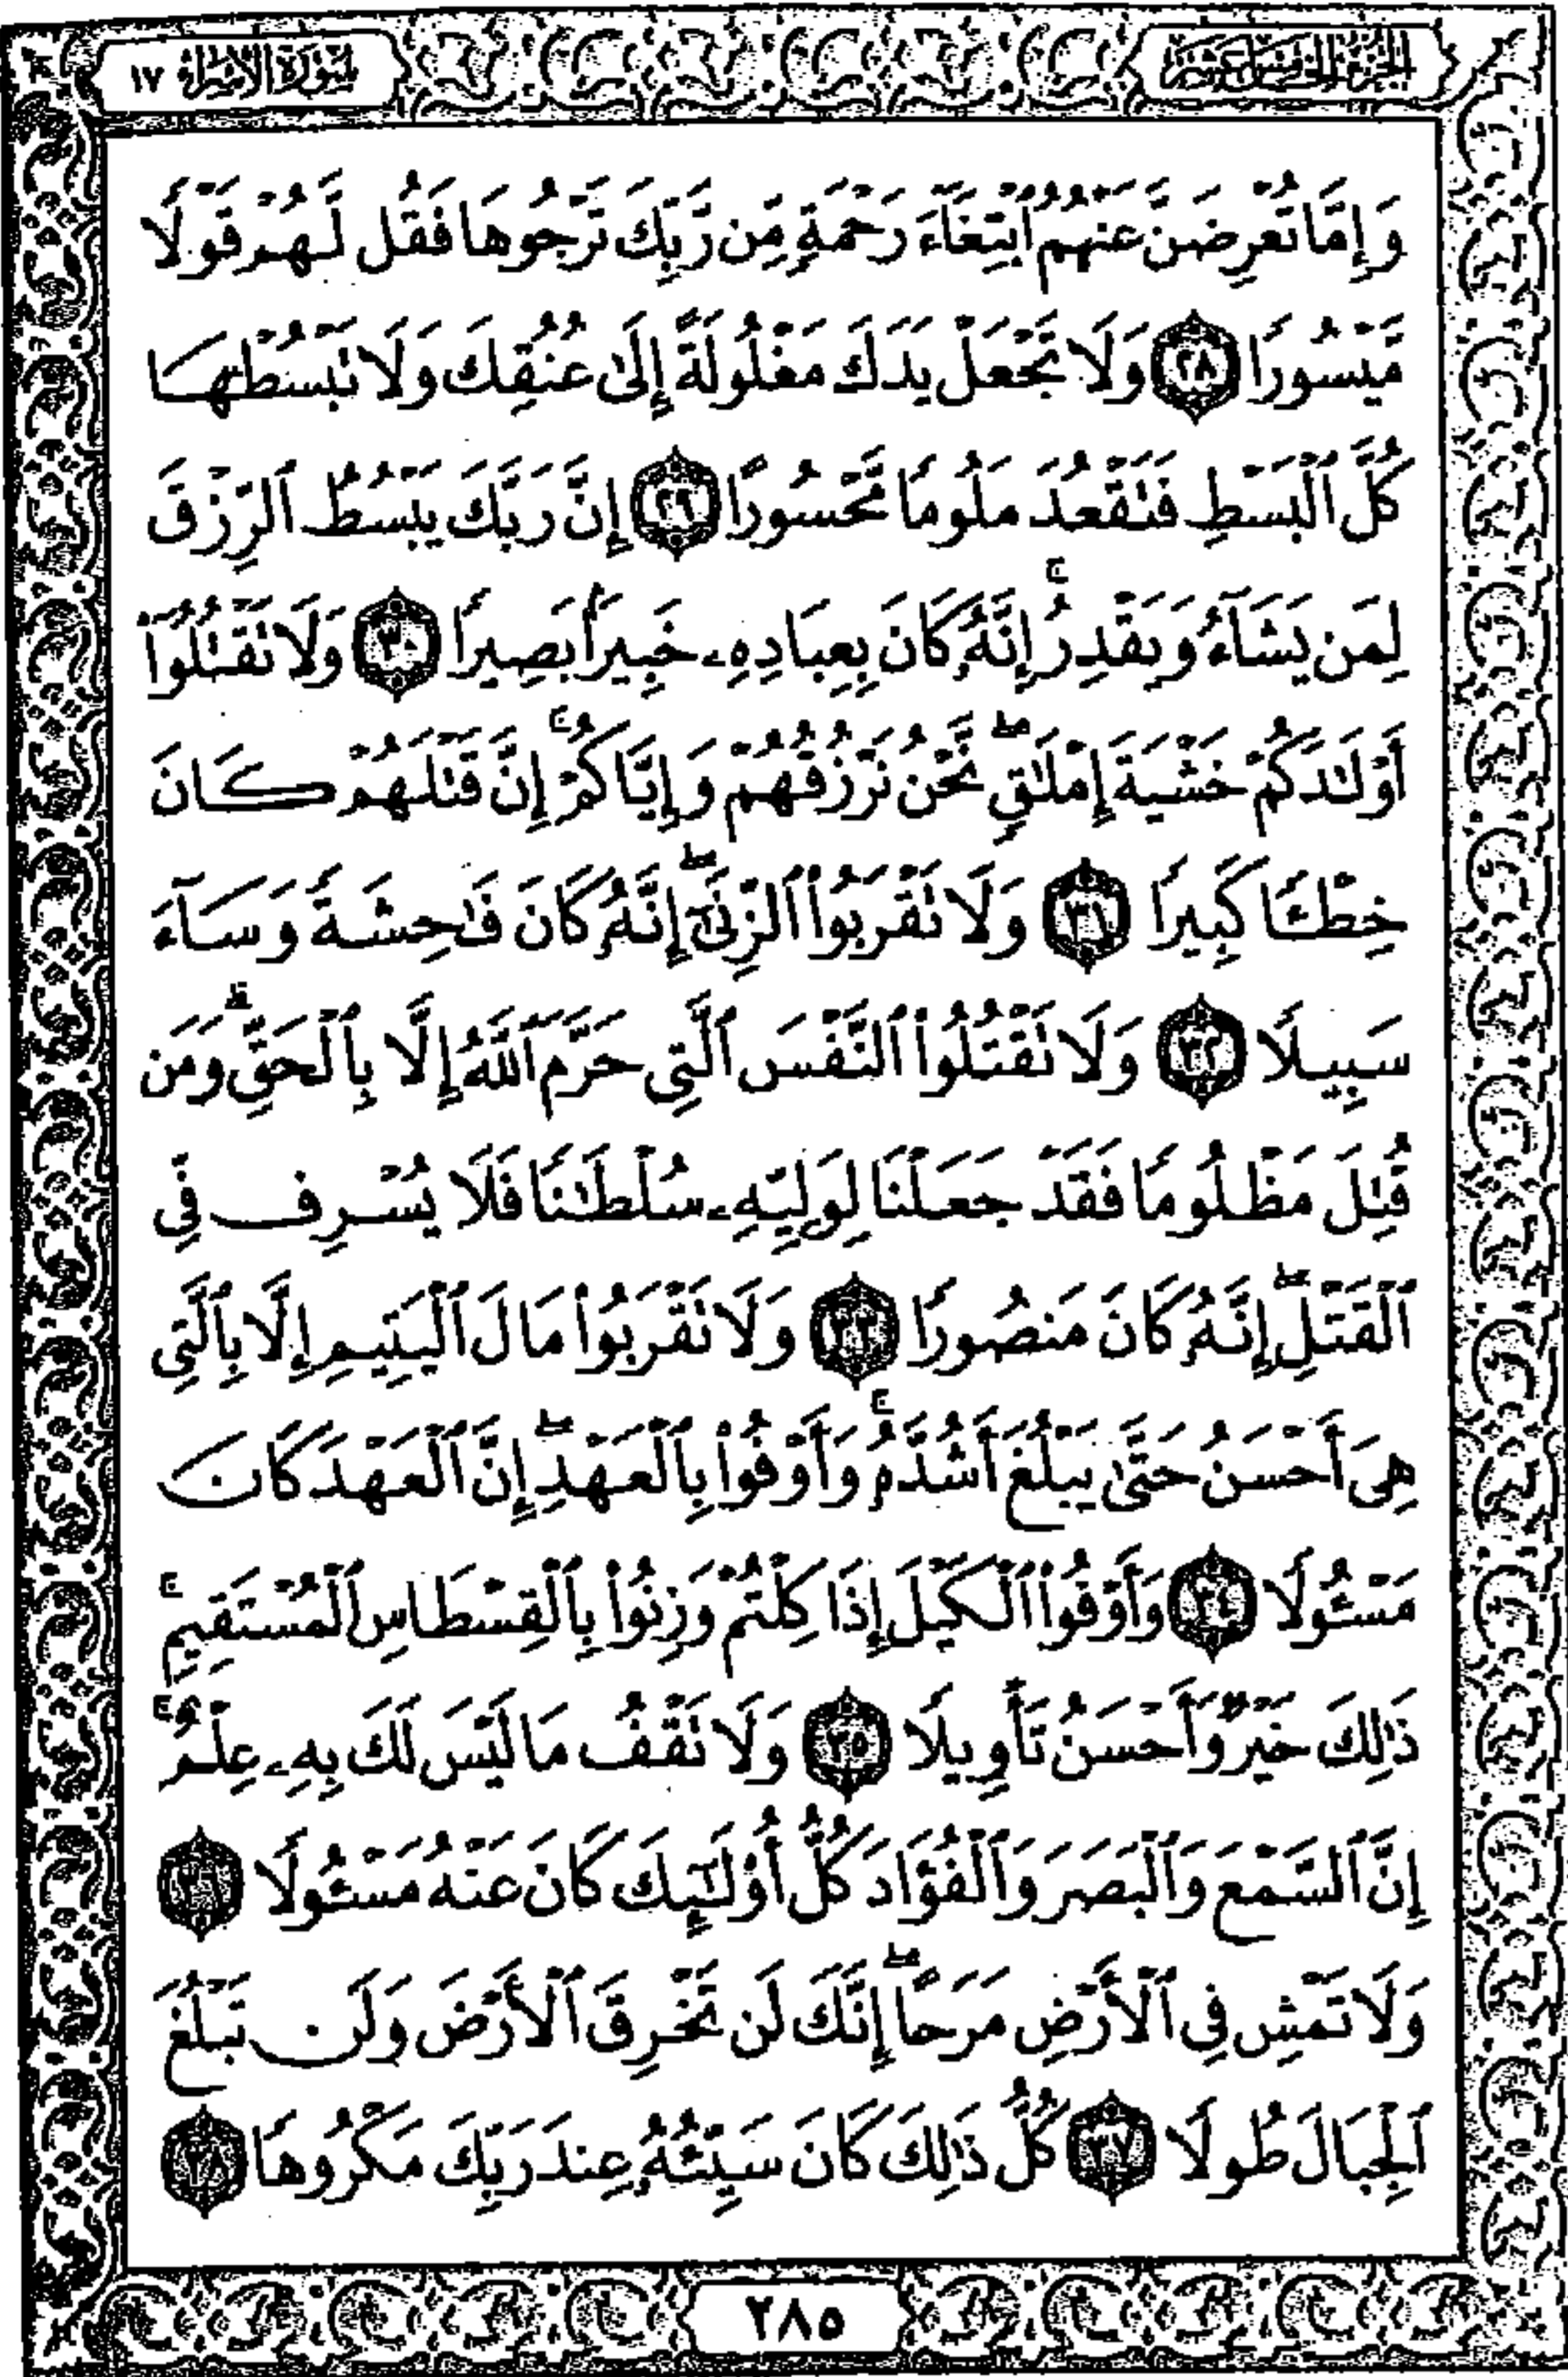 سُورَةُ الإِسْرَاءِ ١٧
الجُزْءُ الخَامِسَ عَشَرَ
وَإِمَّا تُعْرِضَنَّ عَنْهُمُ ٱبْتِغَآءَ رَحْمَةٍ مِّن رَّبِّكَ تَرْجُوهَا فَقُل لَّهُمْ قَوْلًا
مَّيْسُورًا ٢٨ وَلَا تَجْعَلْ يَدَكَ مَغْلُولَةً إِلَىٰ عُنُقِكَ وَلَا تَبْسُطْهَا
كُلَّ ٱلْبَسْطِ فَتَقْعُدَ مَلُومًا مَّحْسُورًا ٢٩ إِنَّ رَبَّكَ يَبْسُطُ ٱلرِّزْقَ
لِمَن يَشَآءُ وَيَقْدِرُ ۚ إِنَّهُۥ كَانَ بِعِبَادِهِۦ خَبِيرًۢا بَصِيرًا ٣٠ وَلَا تَقْتُلُوٓا۟
أَوْلَـٰدَكُمْ خَشْيَةَ إِمْلَـٰقٍ ۖ نَّحْنُ نَرْزُقُهُمْ وَإِيَّاكُمْ ۚ إِنَّ قَتْلَهُمْ كَانَ
خِطْـًٔا كَبِيرًا ٣١ وَلَا تَقْرَبُوا۟ ٱلزِّنَىٰٓ ۖ إِنَّهُۥ كَانَ فَـٰحِشَةً وَسَآءَ
سَبِيلًا ٣٢ وَلَا تَقْتُلُوا۟ ٱلنَّفْسَ ٱلَّتِى حَرَّمَ ٱللَّهُ إِلَّا بِٱلْحَقِّ ۗ وَمَن
قُتِلَ مَظْلُومًا فَقَدْ جَعَلْنَا لِوَلِيِّهِۦ سُلْطَـٰنًا فَلَا يُسْرِف فِّى
ٱلْقَتْلِ ۖ إِنَّهُۥ كَانَ مَنصُورًا ٣٣ وَلَا تَقْرَبُوا۟ مَالَ ٱلْيَتِيمِ إِلَّا بِٱلَّتِى
هِىَ أَحْسَنُ حَتَّىٰ يَبْلُغَ أَشُدَّهُۥ ۚ وَأَوْفُوا۟ بِٱلْعَهْدِ ۖ إِنَّ ٱلْعَهْدَ كَانَ
مَسْـُٔولًا ٣٤ وَأَوْفُوا۟ ٱلْكَيْلَ إِذَا كِلْتُمْ وَزِنُوا۟ بِٱلْقِسْطَاسِ ٱلْمُسْتَقِيمِ ۚ
ذَٰلِكَ خَيْرٌ وَأَحْسَنُ تَأْوِيلًا ٣٥ وَلَا تَقْفُ مَا لَيْسَ لَكَ بِهِۦ عِلْمٌ ۚ
إِنَّ ٱلسَّمْعَ وَٱلْبَصَرَ وَٱلْفُؤَادَ كُلُّ أُو۟لَـٰٓئِكَ كَانَ عَنْهُ مَسْـُٔولًا ٣٦
وَلَا تَمْشِ فِى ٱلْأَرْضِ مَرَحًا ۖ إِنَّكَ لَن تَخْرِقَ ٱلْأَرْضَ وَلَن تَبْلُغَ
ٱلْجِبَالَ طُولًا ٣٧ كُلُّ ذَٰلِكَ كَانَ سَيِّئُهُۥ عِندَ رَبِّكَ مَكْرُوهًا ٣٨
٢٨٥